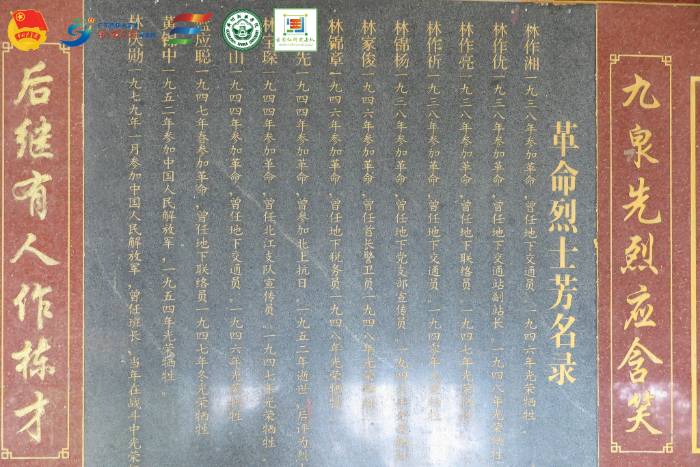 九泉先烈应含笑
革命烈士芳名录
林作湘 一九三八年参加革命，曾任地下交通员。一九四六年光荣牺牲。
林作优 一九三八年参加革命，曾任地下交通站副站长 一九四八年光荣牺牲。
林作亮 一九三八年参加革命，曾任地下联络员 一九四七年光荣牺牲
林作祈 一九三八年参加革命，曾任地下交通员。一九四 年光荣牺牲
林锦杨 一九三八年参加革命，曾任地下党支部宣传员。一九四 年光荣牺牲
林家俊 一九四六年参加革命，曾任首长警卫员 一九四八年光荣牺牲。
林锦章 一九四六年参加革命，曾任地下税务员 一九四八年光荣牺牲
先 一九四四年参加革命，曾参加北上抗日。一九五二年逝世。后评为烈
林 琛 一九四四年参加革命，曾任北江支队宣传员。一九四七年光荣牺牲。
山 一九四四年参加革命，曾任地下交通员。一九四六年光荣牺牲
应聪 一九四七年春参加革命，曾任地下联络员 一九四七年冬光荣牺牲
黄 中 一九五二年参加中国人民解放军，一九五四年光荣牺牲。
林 勋 一九七九年一月参加中国人民解放军，曾任班长，当年在战斗中光荣
后继有人作栋才